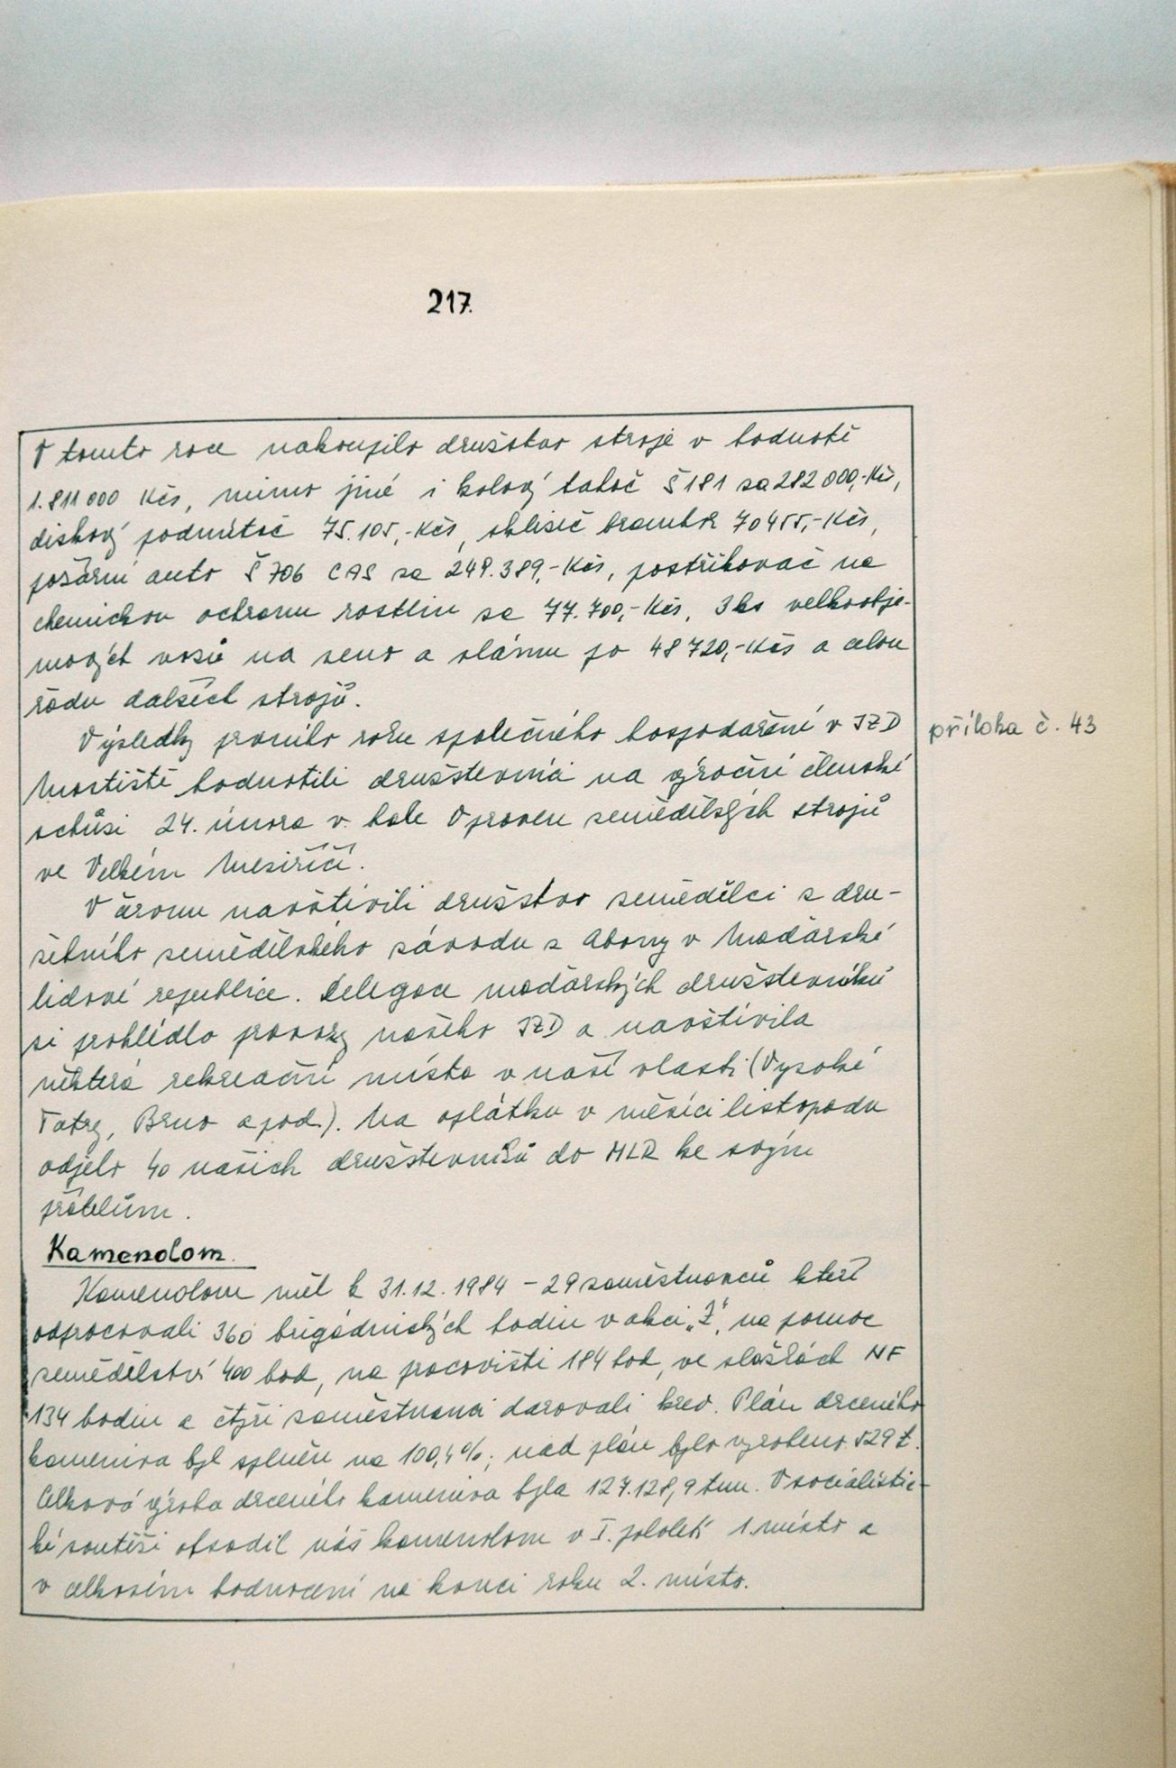 217.
V tomto roce nakoupilo družstvo stroje v hodnotě
1.811 000 Kčs, mimo jiné i kolový tahač Š 181 za 282 000,-Kčs,
diskový podmítač 75.105,-Kčs, sklízeč brambor 70455,-Kčs,
požární auto Š 706 CAS za 249.389,-Kčs, postřikovač na
chemickou ochranu rostlin za 77.700,-Kčs, 3 ks velkoobje-
mových vozů na seno a slámu po 48720,-Kčs a celou
řadu dalších strojů.
Výsledky prvního roku společného hospodaření v JZD
příloha č. 43
Mostiště hodnotili družstevníci na výroční členské
schůzi 24. února v hale Opraven zemědělských strojů
ve Velkém Meziříčí.
V srpnu navštívili družstvo zemědělci z dru-
žebního zemědělského závodu z Abony v Maďarské
lidové republice. Delegace maďarských družstevníků
si prohlédla provozy našeho JZD a navštívila
některá rekreační místa v naší vlasti (Vysoké
Tatry, Brno apod.). Na oplátku v měsíci listopadu
odjelo 40 našich družstevníků do MLR ke svým
přátelům.
Kamenolom.
Kamenolom měl k 31.12. 1984 - 29 zaměstnanců kteří
odpracovali 360 brigádnických hodin v akci „Z", na pomoc
zemědělství 400 hod, na pracovišti 184 hod, ve složkách NF
134 hodin a čtyři zaměstnanci darovali krev. Plán drceného
kameniva byl splněn na 100,4%; nad plán bylo vyrobeno 529 t.
Celková výroba drceného kameniva byla 127.128,9 tun. V socialistic-
ké soutěži obsadil náš kamenolom v I. pololetí 1. místo a
v celkovém hodnocení na konci roku 2. místo.